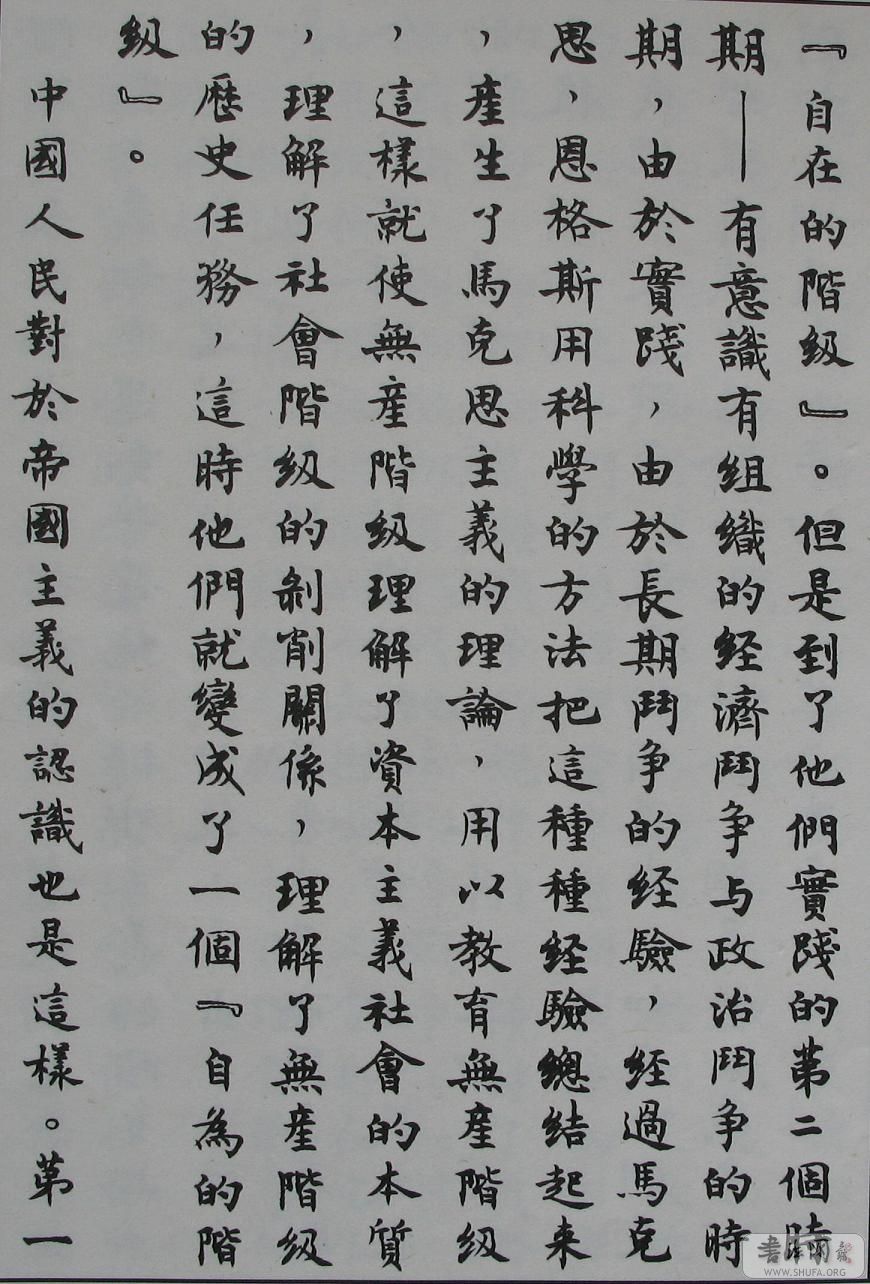 『自在的階級』。但是到了他們實踐的第二個時
期——有意識有組織的経濟鬥争与政治鬥争的時
期，由於實踐，由於長期鬥争的経驗，経過馬克
思，恩格斯用科學的方法把這種種経驗總结起来
，産生了馬克思主義的理論，用以教育無産階级
，這樣就使無産階级理解了資本主義社會的本質
，理解了社會階级的剝削關係，理解了無産階级
的歷史任務，這時他們就變成了一個『自為的階
级』。
中國人民對於帝國主義的認識也是這樣。第一
WWW.SHUFA.ORG